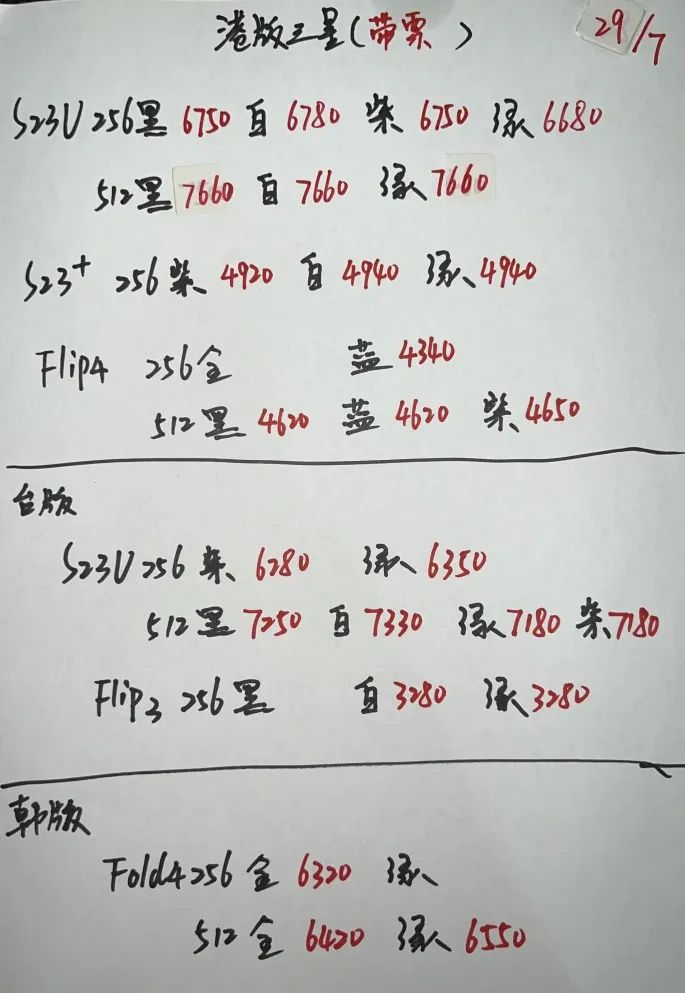 港版三星(带票) 29/7
S23U 256黑 6750 白 6780 紫 6750 绿 6680
512黑 7660 白 7660 绿 7660
S23+ 256紫 4920 白 4940 绿 4940
Flip4 256金 蓝 4340
512黑 4620 蓝 4620 紫 4650
台版
S23U 256 紫 6280 绿 6350
512黑 7250 白 7330 绿 7180 紫 7180
Flip3 256黑 白 3280 绿 3280
韩版
Fold4 256 金 6320 绿
512金 6420 绿 6550